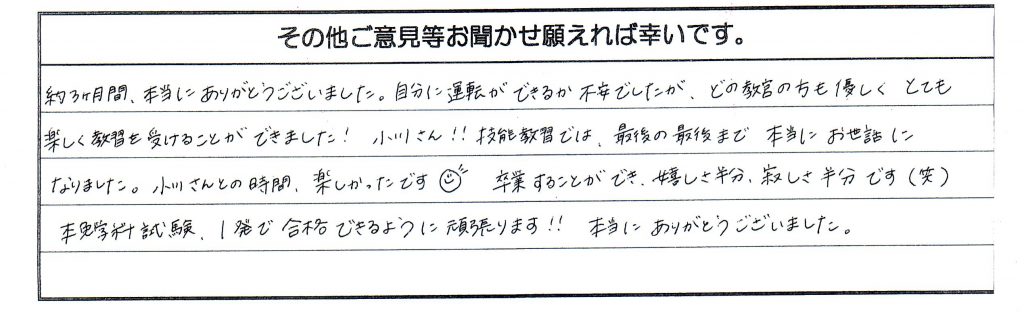 その他ご意見等お聞かせ願えれば幸いです。
約3ヶ月間、本当にありがとうございました。自分に運転ができるか不安でしたが、どの教官の方も優しく とても
楽しく教習を受けることができました! 小川さん!! 技能教習では、最後の最後まで 本当に お世話に
なりました。小川さんとの時間、楽しかったです 卒業することができ、嬉しさ半分、寂しさ半分です(笑)
本免学科試験、1発で合格できるように頑張ります!! 本当に ありがとうございました。